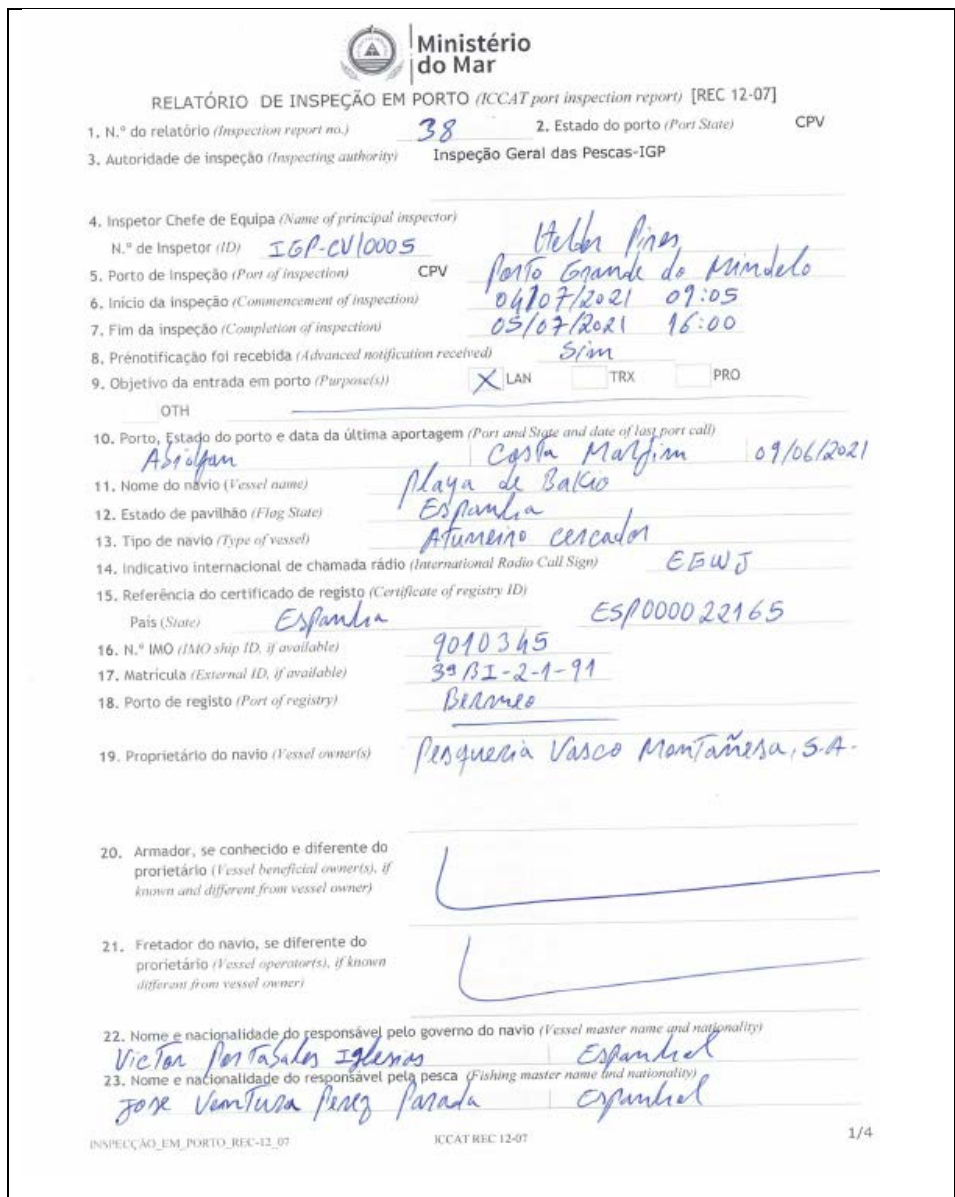 Ministério
do Mar
RELATÓRIO DE INSPEÇÃO EM PORTO (ICCAT port inspection report) [REC 12-07]
1. N.º do relatório (Inspection report no.) 38 2. Estado do porto (Port State) CPV
3. Autoridade de inspeção (Inspecting authority) Inspeção Geral das Pescas-IGP
4. Inspetor Chefe de Equipa (Name of principal inspector)
N.º de Inspetor (ID) IGP-CV/0005 Helder Pires
5. Porto de Inspeção (Port of inspection) CPV Porto Grande do Mindelo
6. Início da inspeção (Commencement of inspection) 04/07/2021 09:05
7. Fim da inspeção (Completion of inspection) 05/07/2021 16:00
8. Prénotificação foi recebida (Advanced notification received) Sim
9. Objetivo da entrada em porto (Purpose(s)) X LAN TRX PRO
OTH
10. Porto, Estado do porto e data da última aportagem (Port and State and date of last port call)
Costa Marfim 09/06/2021
11. Nome do navio (Vessel name) Playa de Bakio
12. Estado de pavilhão (Flag State) Espanha
13. Tipo de navio (Type of vessel) Atuneiro cercador
14. Indicativo internacional de chamada rádio (International Radio Call Sign) EGWJ
15. Referência do certificado de registo (Certificate of registry ID)
País (State) Espanha ESP000022165
16. N.º IMO (IMO ship ID, if available) 9010345
17. Matrícula (External ID, if available) 3ª BI-2-1-91
18. Porto de registo (Port of registry) Bermeo
19. Proprietário do navio (Vessel owner(s) Pesqueria Vasco Montañesa, S.A.
20. Armador, se conhecido e diferente do
prorietário (Vessel beneficial owner(s), if
known and different from vessel owner)
21. Fretador do navio, se diferente do
prorietário (Vessel operator(s), if known
different from vessel owner)
22. Nome e nacionalidade do responsável pelo governo do navio (Vessel master name and nationality)
Victor Portasales Iglesias Espanhol
23. Nome e nacionalidade do responsável pela pesca (Fishing master name and nationality)
Jose Ventura Perez Parada Espanhol
INSPECÇÃO_EM_PORTO_REC-12_07 ICCAT REC 12-07 1/4